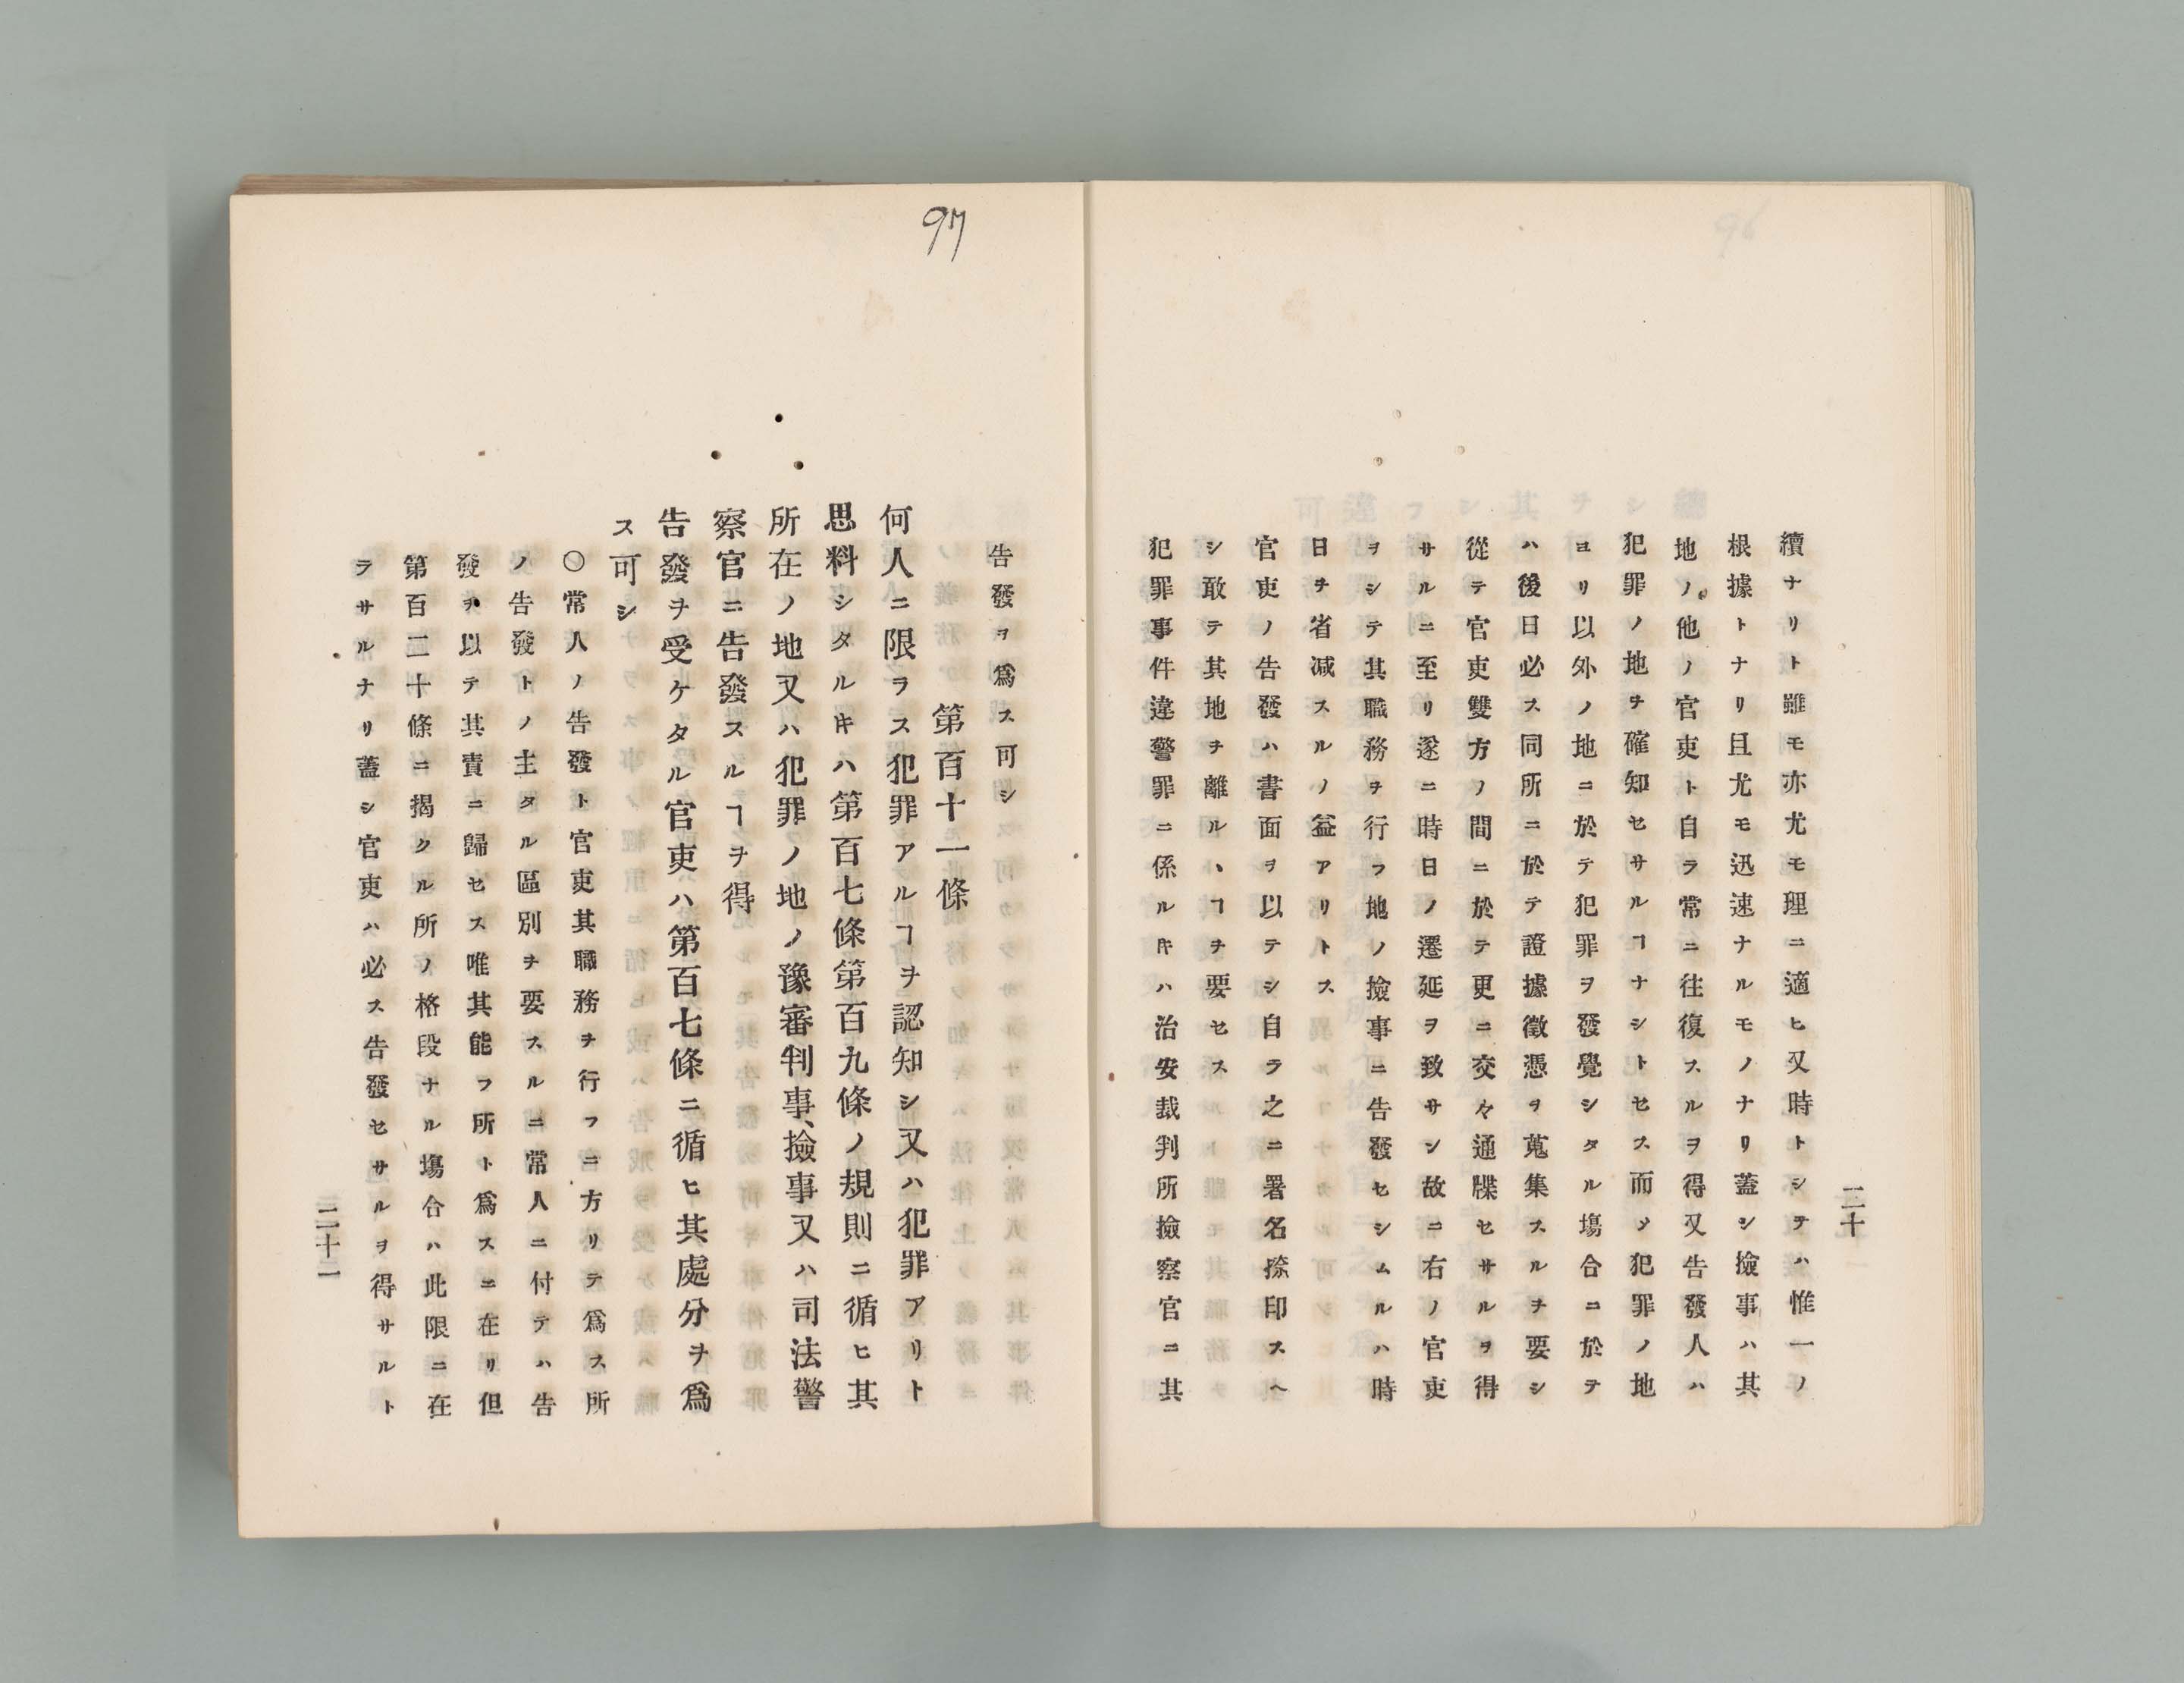 二十
續ナリト雖モ亦尤モ理ニ適ヒ又時トシテハ惟一ノ
根據トナリ且尤モ迅速ナルモノナリ蓋シ撿事ハ其
地ノ他ノ官吏ト自ラ常ニ往復スルヲ得又告發人ハ
犯罪ノ地ヲ確知セサルヿナシトセス而〆犯罪ノ地
ヨリ以外ノ地ニ於テ犯罪ヲ發覺シタル塲合ニ於テ
ハ後日必ス同所ニ於テ證據徵憑ヲ蒐集スルヲ要シ
從テ官吏雙方ノ間ニ於テ更ニ交々通牒セサルヲ得
サルニ至リ遂ニ時日ノ遷延ヲ致サン故ニ右ノ官吏
ヲシテ其職務ヲ行フ地ノ撿事ニ告發セシムルハ時
日ヲ省减スルノ益アリトス
官吏ノ告發ハ書面ヲ以テシ自ラ之ニ署名捺印スヘ
シ敢テ其地ヲ離ルヽヿヲ要セス
犯罪事件違警罪ニ係ルキハ治安裁判所撿察官ニ其
97
告發ヲ爲ス可シ
第百十一條
何人ニ限ラス犯罪アルヿヲ認知シ又ハ犯罪アリト
思料シタルキハ第百七條第百九條ノ規則ニ循ヒ其
所在ノ地又ハ犯罪ノ地ノ豫審判事、撿事又ハ司法警
察官ニ告發スルヿヲ得
告發ヲ受ケタル官吏ハ第百七條ニ循ヒ其處分ヲ爲
ス可シ
〇常人ノ告發ト官吏其職務ヲ行フニ方リテ爲ス所
ノ告發トノ主タル區別ヲ要スルニ常人ニ付テハ告
發ヲ以テ其責ニ歸セス唯其能フ所ト爲スニ在リ但
第百二十條ニ揭クル所ノ格段ナル塲合ハ此限ニ在
ラサルナリ蓋シ官吏ハ必ス告發セサルヲ得サルト
二十一